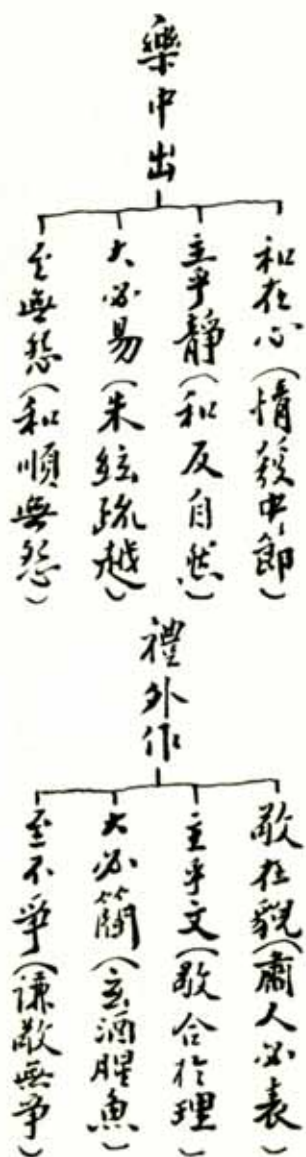 樂中出
和在心(情發中節)
主乎靜(和反自然)
大必易(朱絃疏越)
至無怨(和順無怨)
禮外作
敬在貌(肅人必表)
主乎文(敬合於理)
大必簡(玄酒腥魚)
至不爭(謙敬無爭)